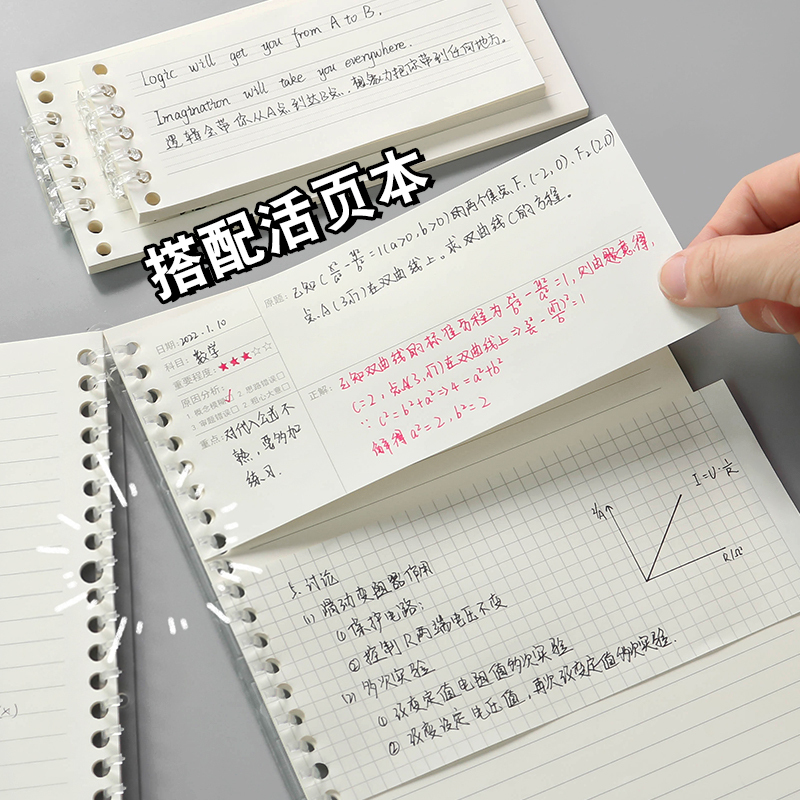 Logic will get you from A to B.
Imagination will take you everywhere.
逻辑会带你从A点到达B点,想象力把你带到任何地方。
搭配活页本
日期: 2022.1.10
科目: 数学
重要程度: ★★★☆☆
原因分析:
1.概念模糊☑ 2.思路错误□
3.审题错误□ 4.粗心大意□
重点: 对代入公式不
熟,要多加
练习.
原题: 已知C x²/a² - y²/b² =1(a>0,b>0)的两个焦点F₁(-2,0)、F₂(2,0)
点A(3,√7)在双曲线上。求双曲线C的方程。
正解: 已知双曲线的标准方程为 x²/a² - y²/b² =1, 则由题意得,
c=2, 点A(3,√7)在双曲线上⇒ (√7)²=1
∵ c²=b²+a²⇒4=a²+b²
解得a²=2,b²=2
I/A
I=U·1/R
R/Ω
5.讨论
(1) 滑动变阻器作用
①保护电路;
②控制R两端电压不变
(2) 多次实验
①改变定值电阻值多次实验
②改变设定电压值,再次改变定值多次实验.